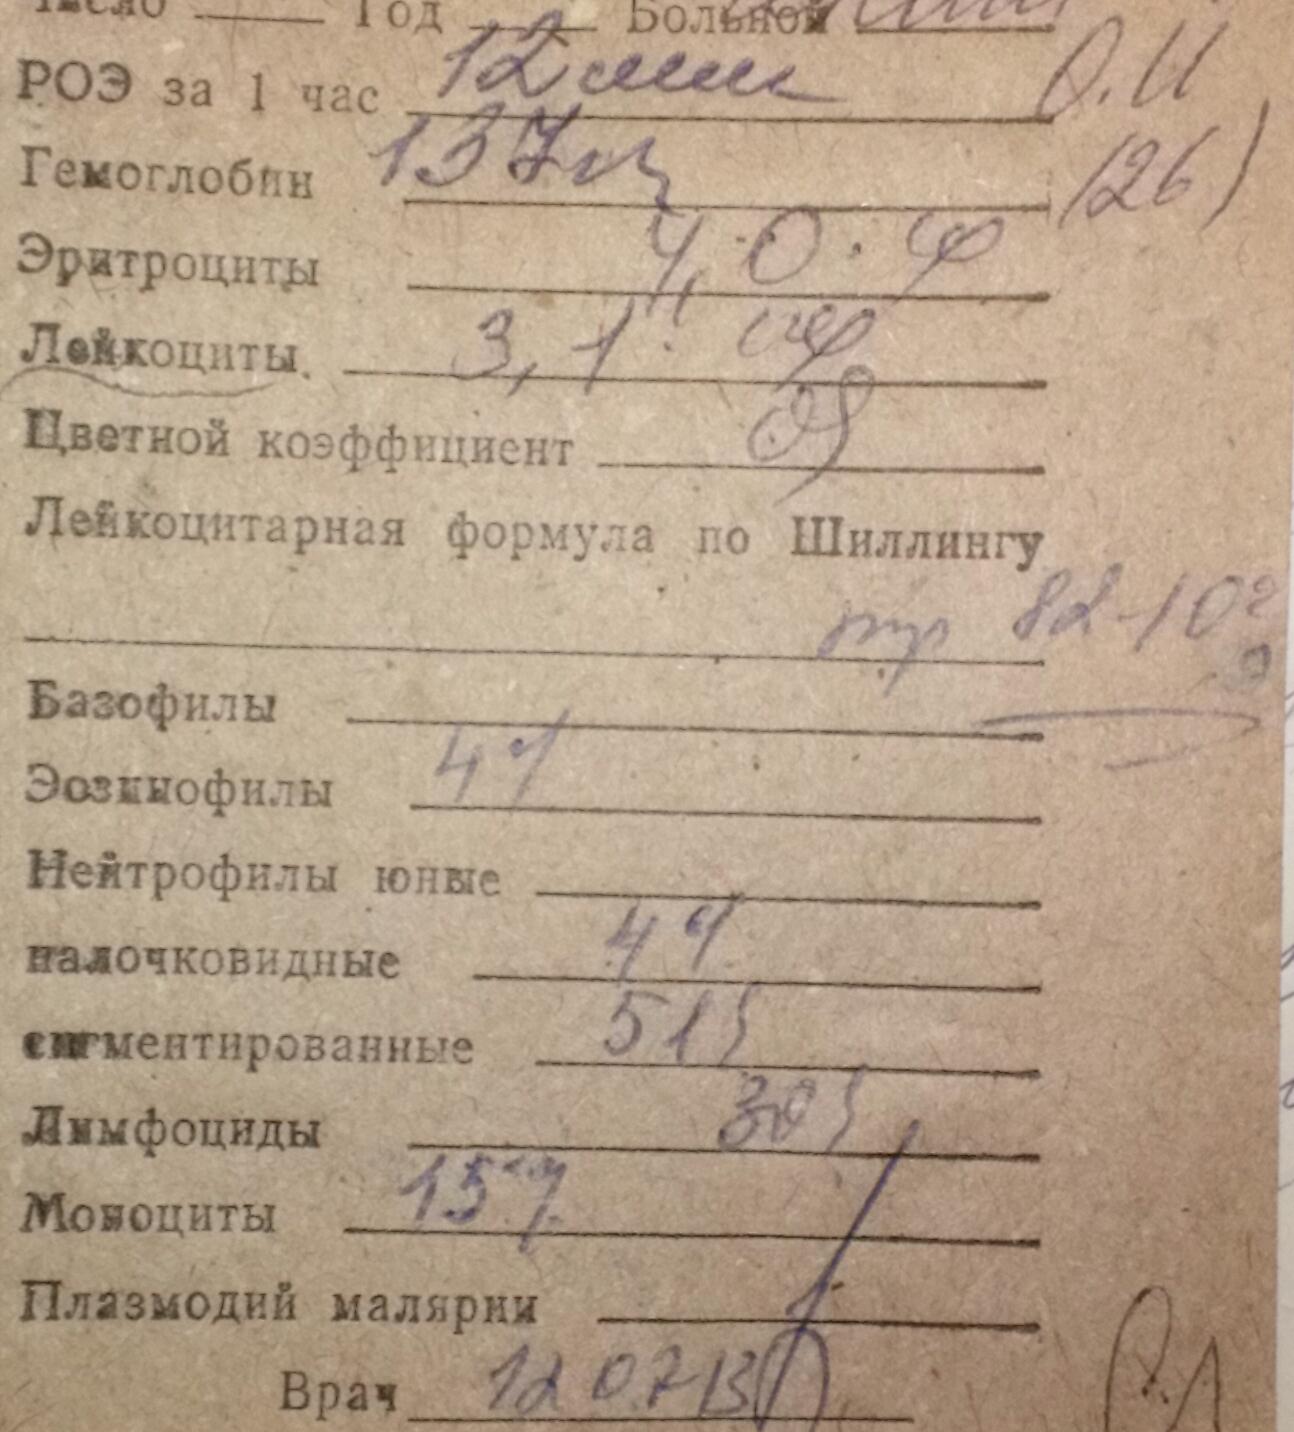 Число Год Больной
РОЭ за 1 час 12 мм О.И
Гемоглобин 137 (26)
Эритроциты 4,0
Лейкоциты 3,1
Цветной коэффициент
Лейкоцитарная формула по Шиллингу
тр 82-10
Базофилы
Эозинофилы 4%
Нейтрофилы юные
палочковидные 4%
сегментированные 51%
Лимфоциды 30%
Моноциты 15%
Плазмодий малярии
Врач 12 07 13